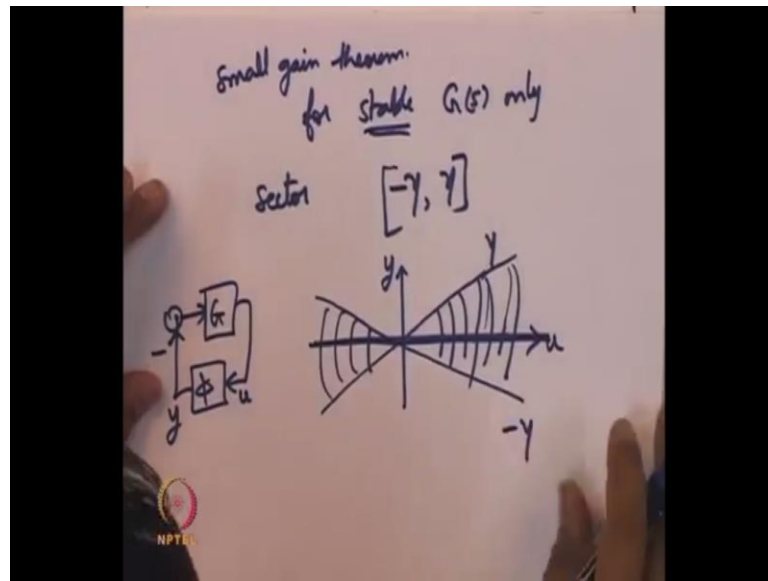 small gain theorem.
for stable G(s) only
Sector [-γ, γ]
y
γ
G
-
u
φ
u
y
-γ
NPTEL